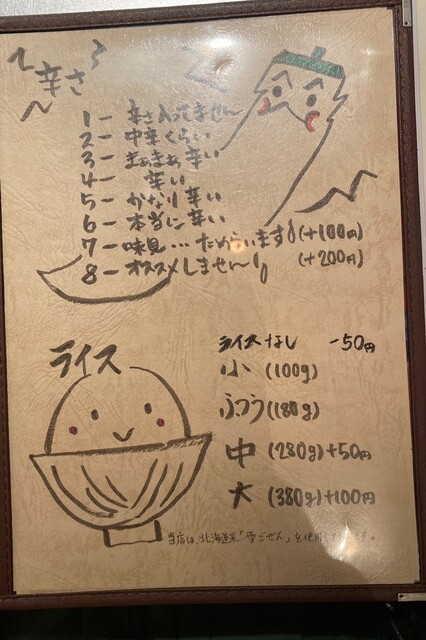 辛さ
1ー 辛さ入ってません
2ー 中辛くらい
3ー まぁまぁ辛い
4ー 辛い
5ー かなり辛い
6ー 本当に辛い
7ー 味見…ためらいます(+100円)
8ー オススメしません!(+200円)
ライス
ライスなし -50円
小 (100g)
ふつう(180g)
中 (280g)+50円
大 (380g)+100円
当店は、北海道米「ゆきごぜん」を使用してます。